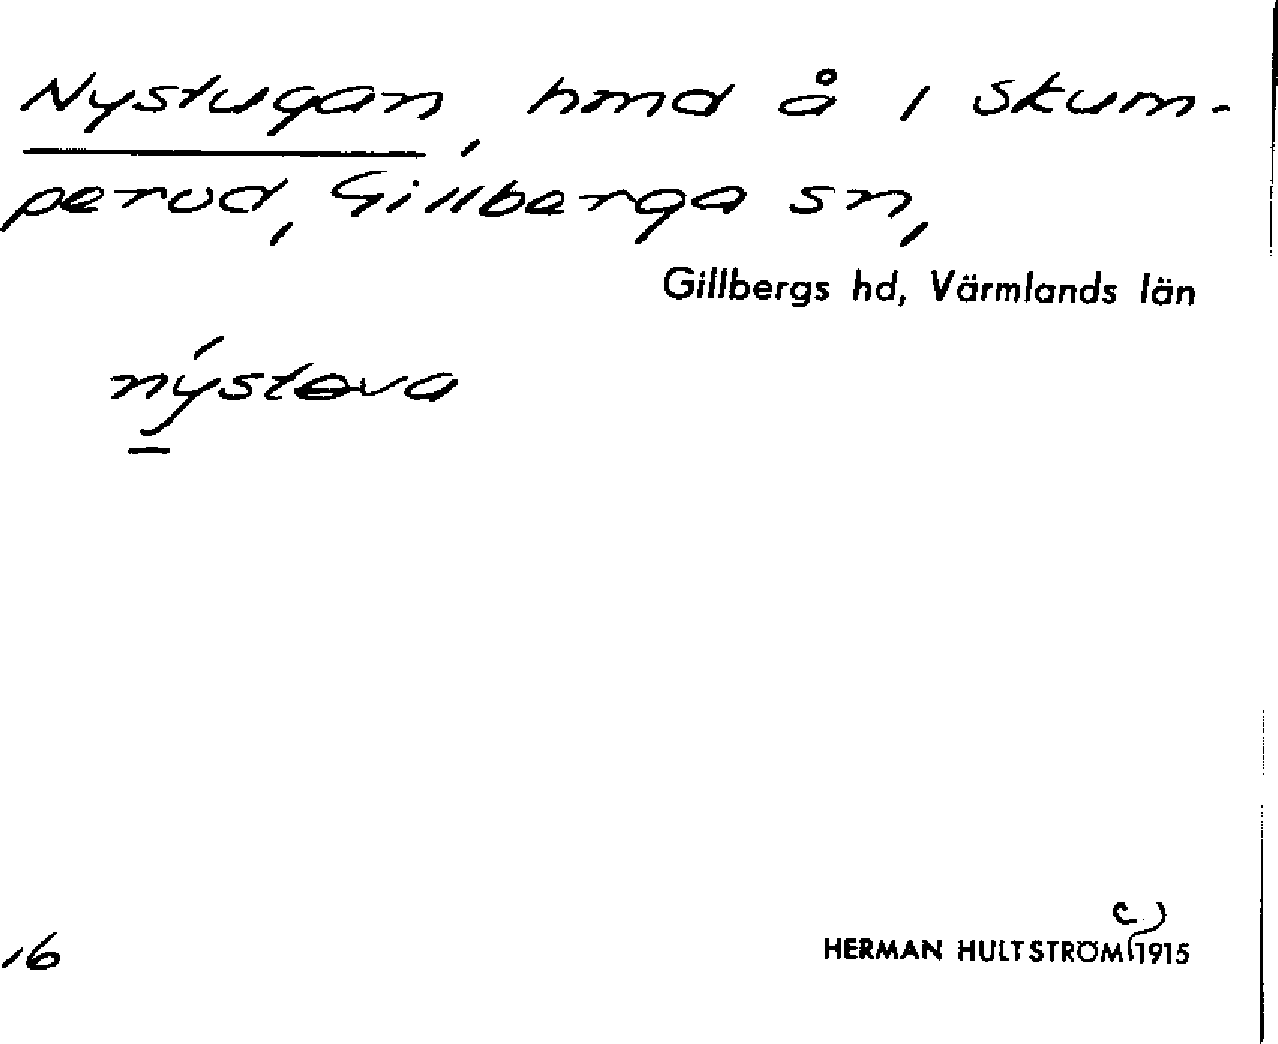 Nystugan, hmd å 1 Skum-
perud, Gillberga sn,
Gillbergs hd, Värmlands län
nýstova
16
c.
HERMAN HULTSTRÖM 1915